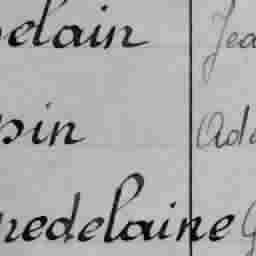 elain Jea
pin Ado
redelaine G